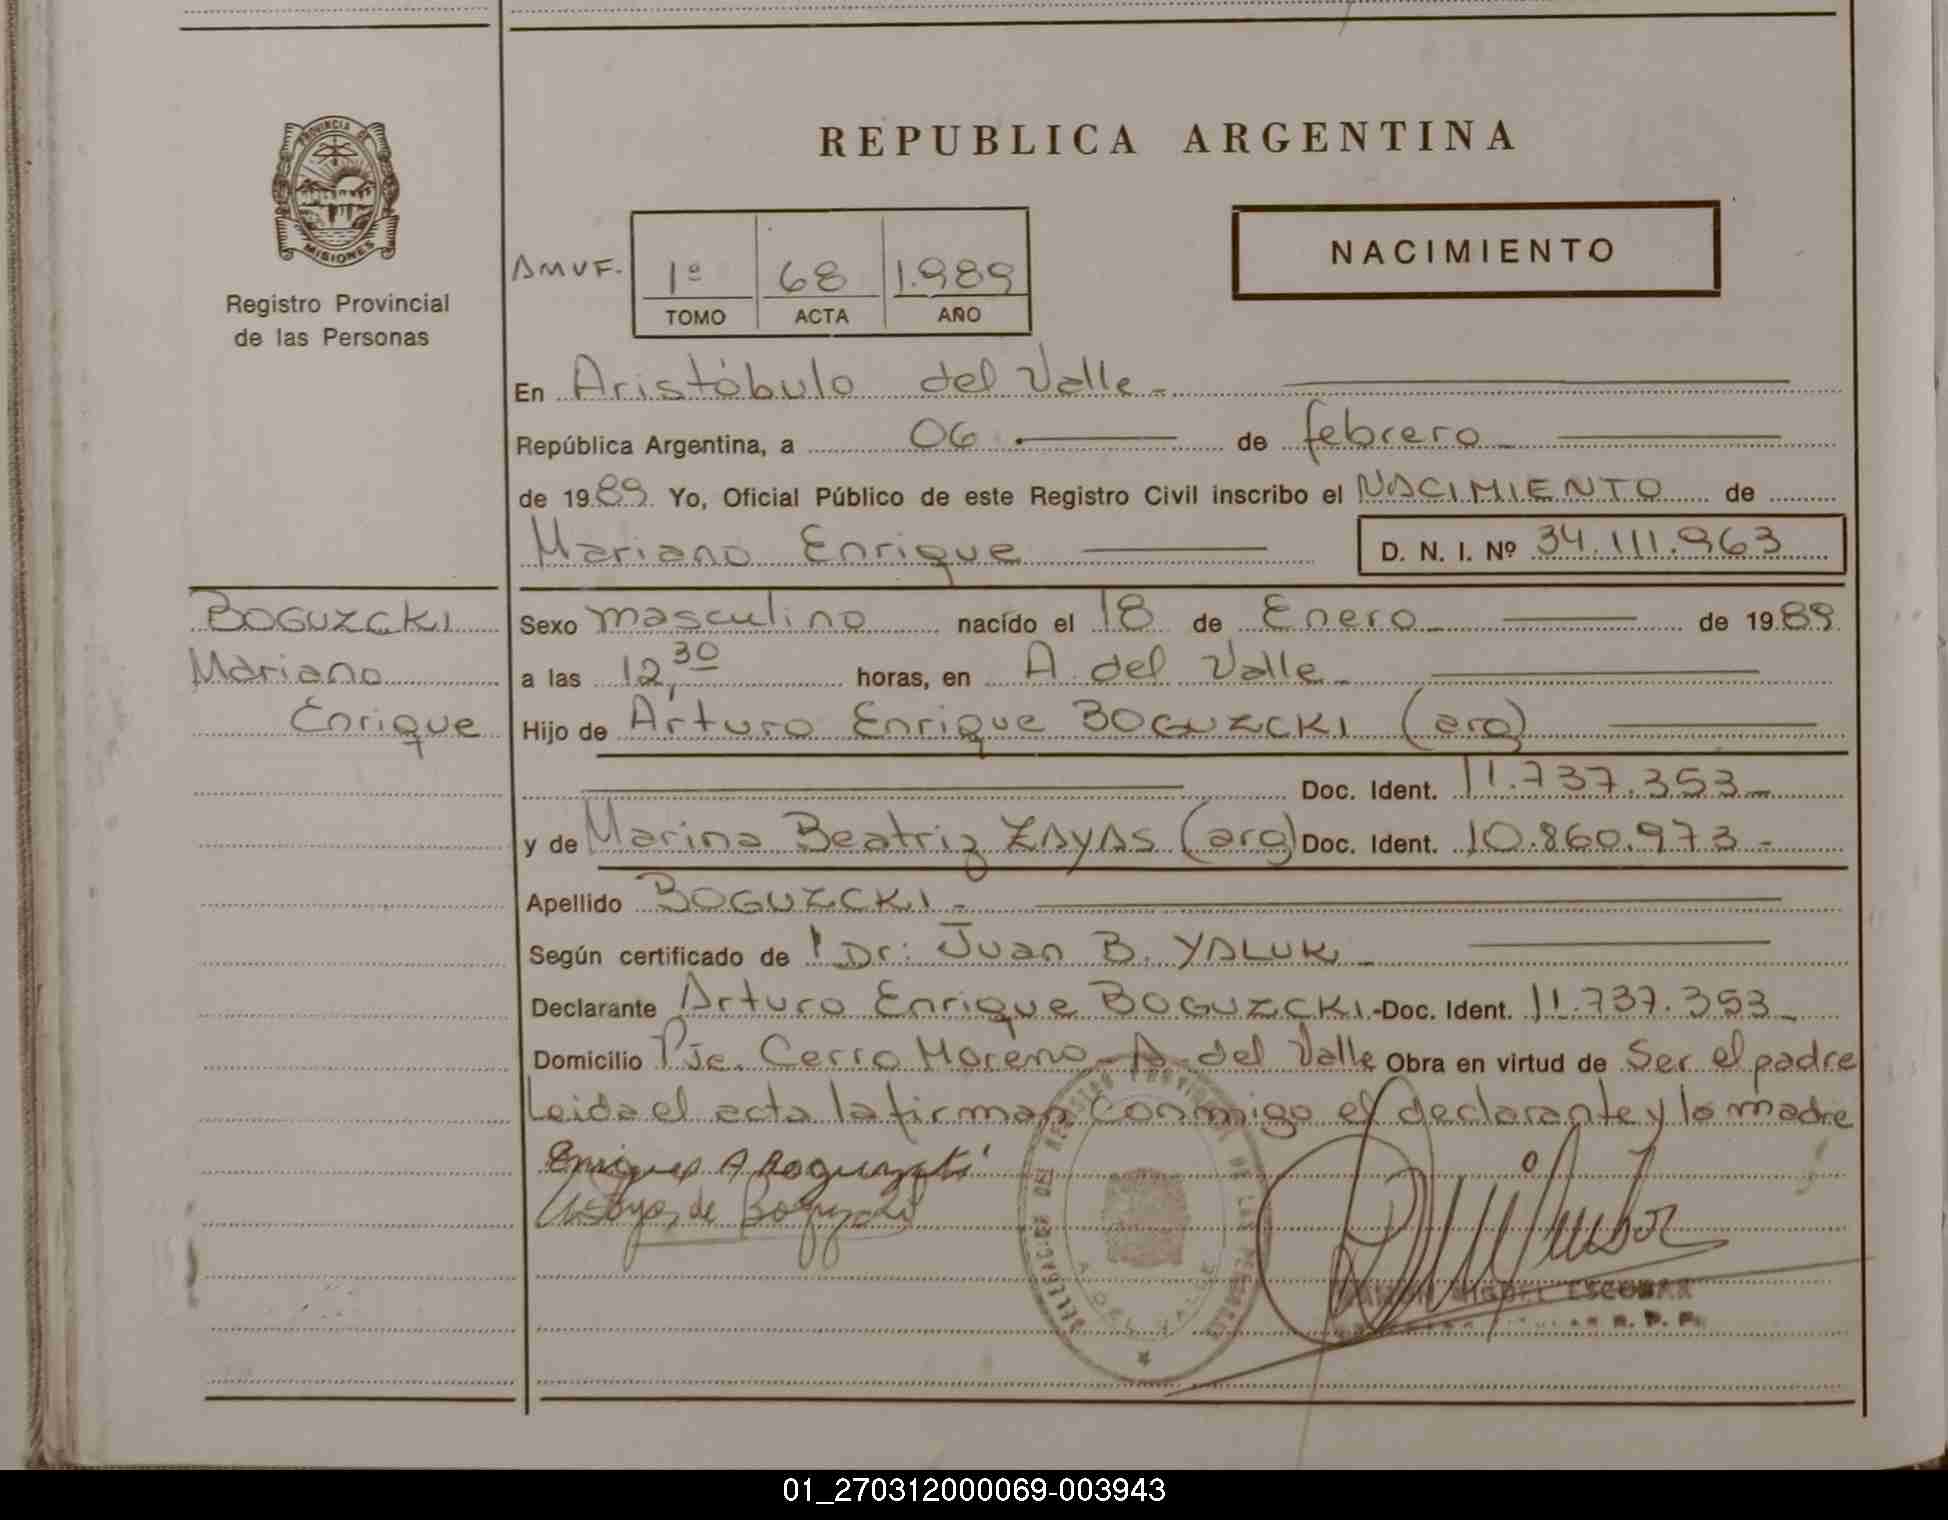 PROVINCIA DE
MISIONES
Registro Provincial
de las Personas
REPUBLICA ARGENTINA
NACIMIENTO
AMVF. 1º 68 1.989
TOMO ACTA AÑO
En Aristóbulo del Valle.-
República Argentina, a 06 de febrero
de 1989 Yo, Oficial Público de este Registro Civil inscribo el NACIMIENTO de
Mariano Enrique D. N. I. Nº 34.111.963
BOGUZCKI
Mariano
Enrique
Sexo masculino nacido el 18 de Enero de 1989
a las 12,30 horas, en A. del Valle
Hijo de Arturo Enrique BOGUZCKI (arg)
Doc. Ident. 11.737.353
y de Marina Beatriz ZAYAS (arg) Doc. Ident. 10.860.973.-
Apellido BOGUZCKI.-
Según certificado de Dr: Juan B. YALUK
Declarante Arturo Enrique BOGUZCKI.-Doc. Ident. 11.737.353
Domicilio Pje. Cerro Moreno-A. del Valle Obra en virtud de Ser el padre
Leida el acta la firman conmigo el declarante y la madre
de
DELEGACION DEL REGISTRO PROVINCIAL DE LAS PERSONAS
A. DEL VALLE
MIGUEL ESCOBAR
R. P. P.
01_270312000069-003943